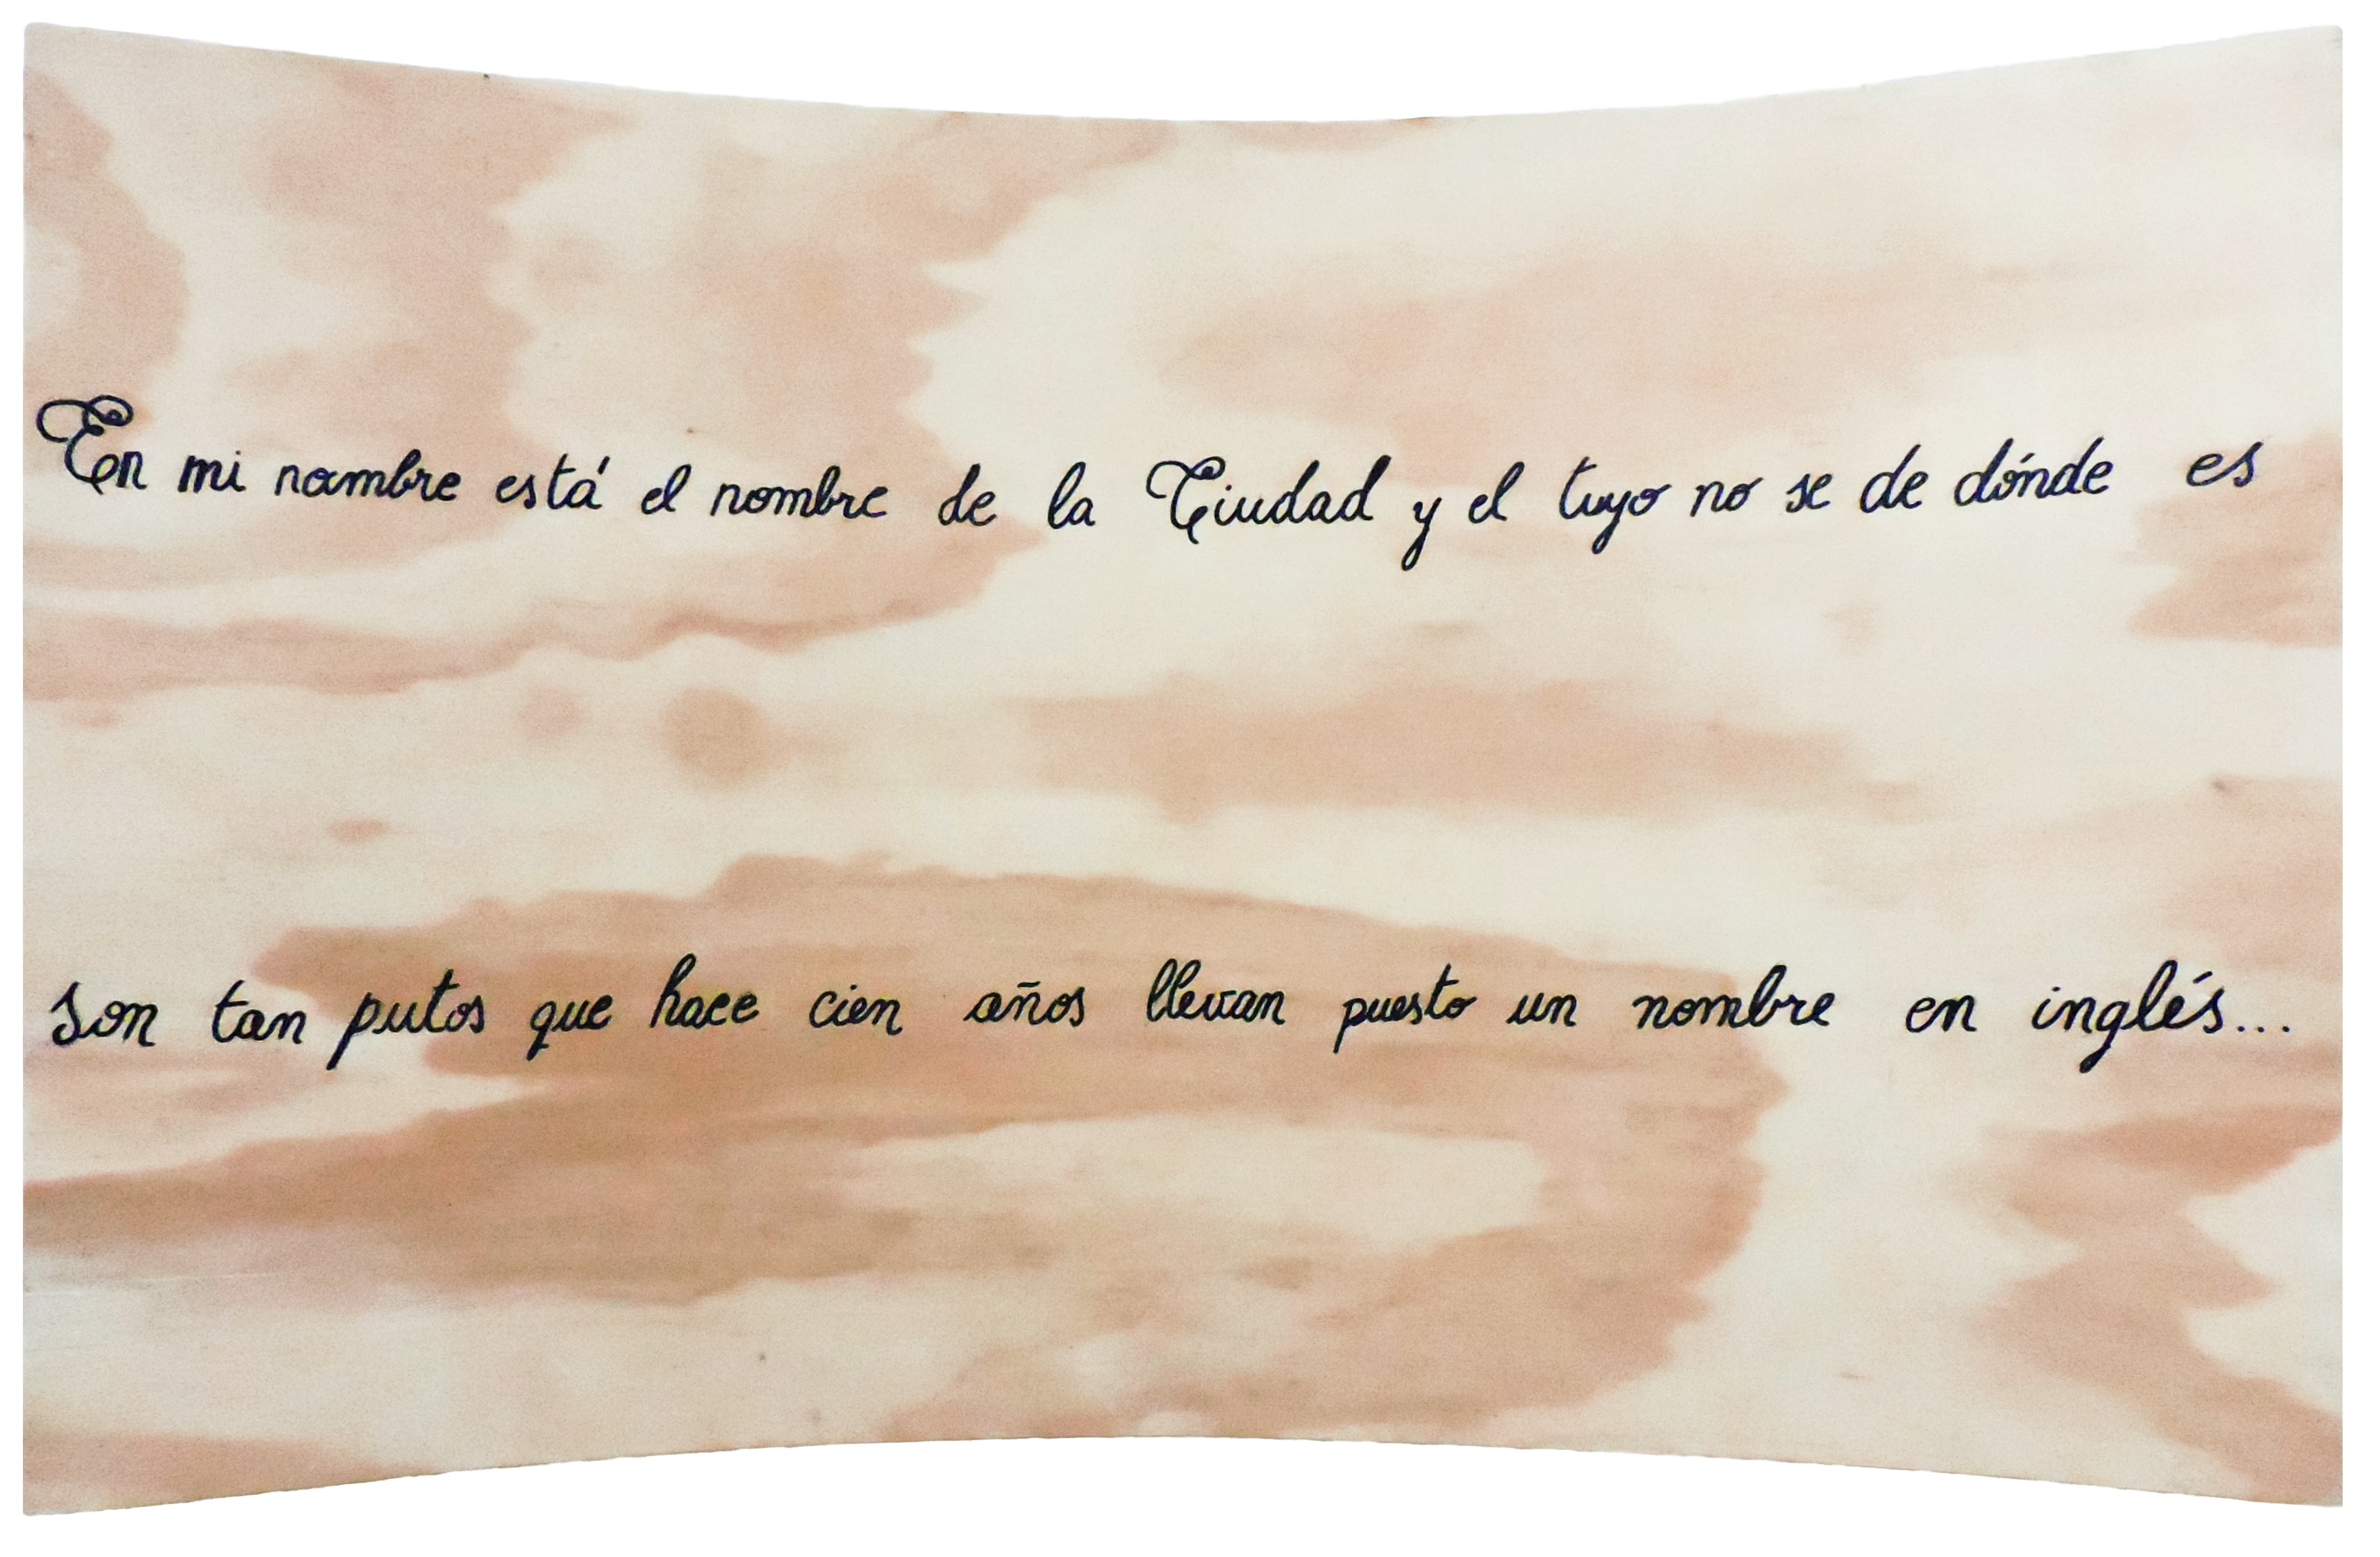 En mi nombre está el nombre de la Ciudad y el tuyo no se de dónde es
son tan putos que hace cien años llevan puesto un nombre en inglés...